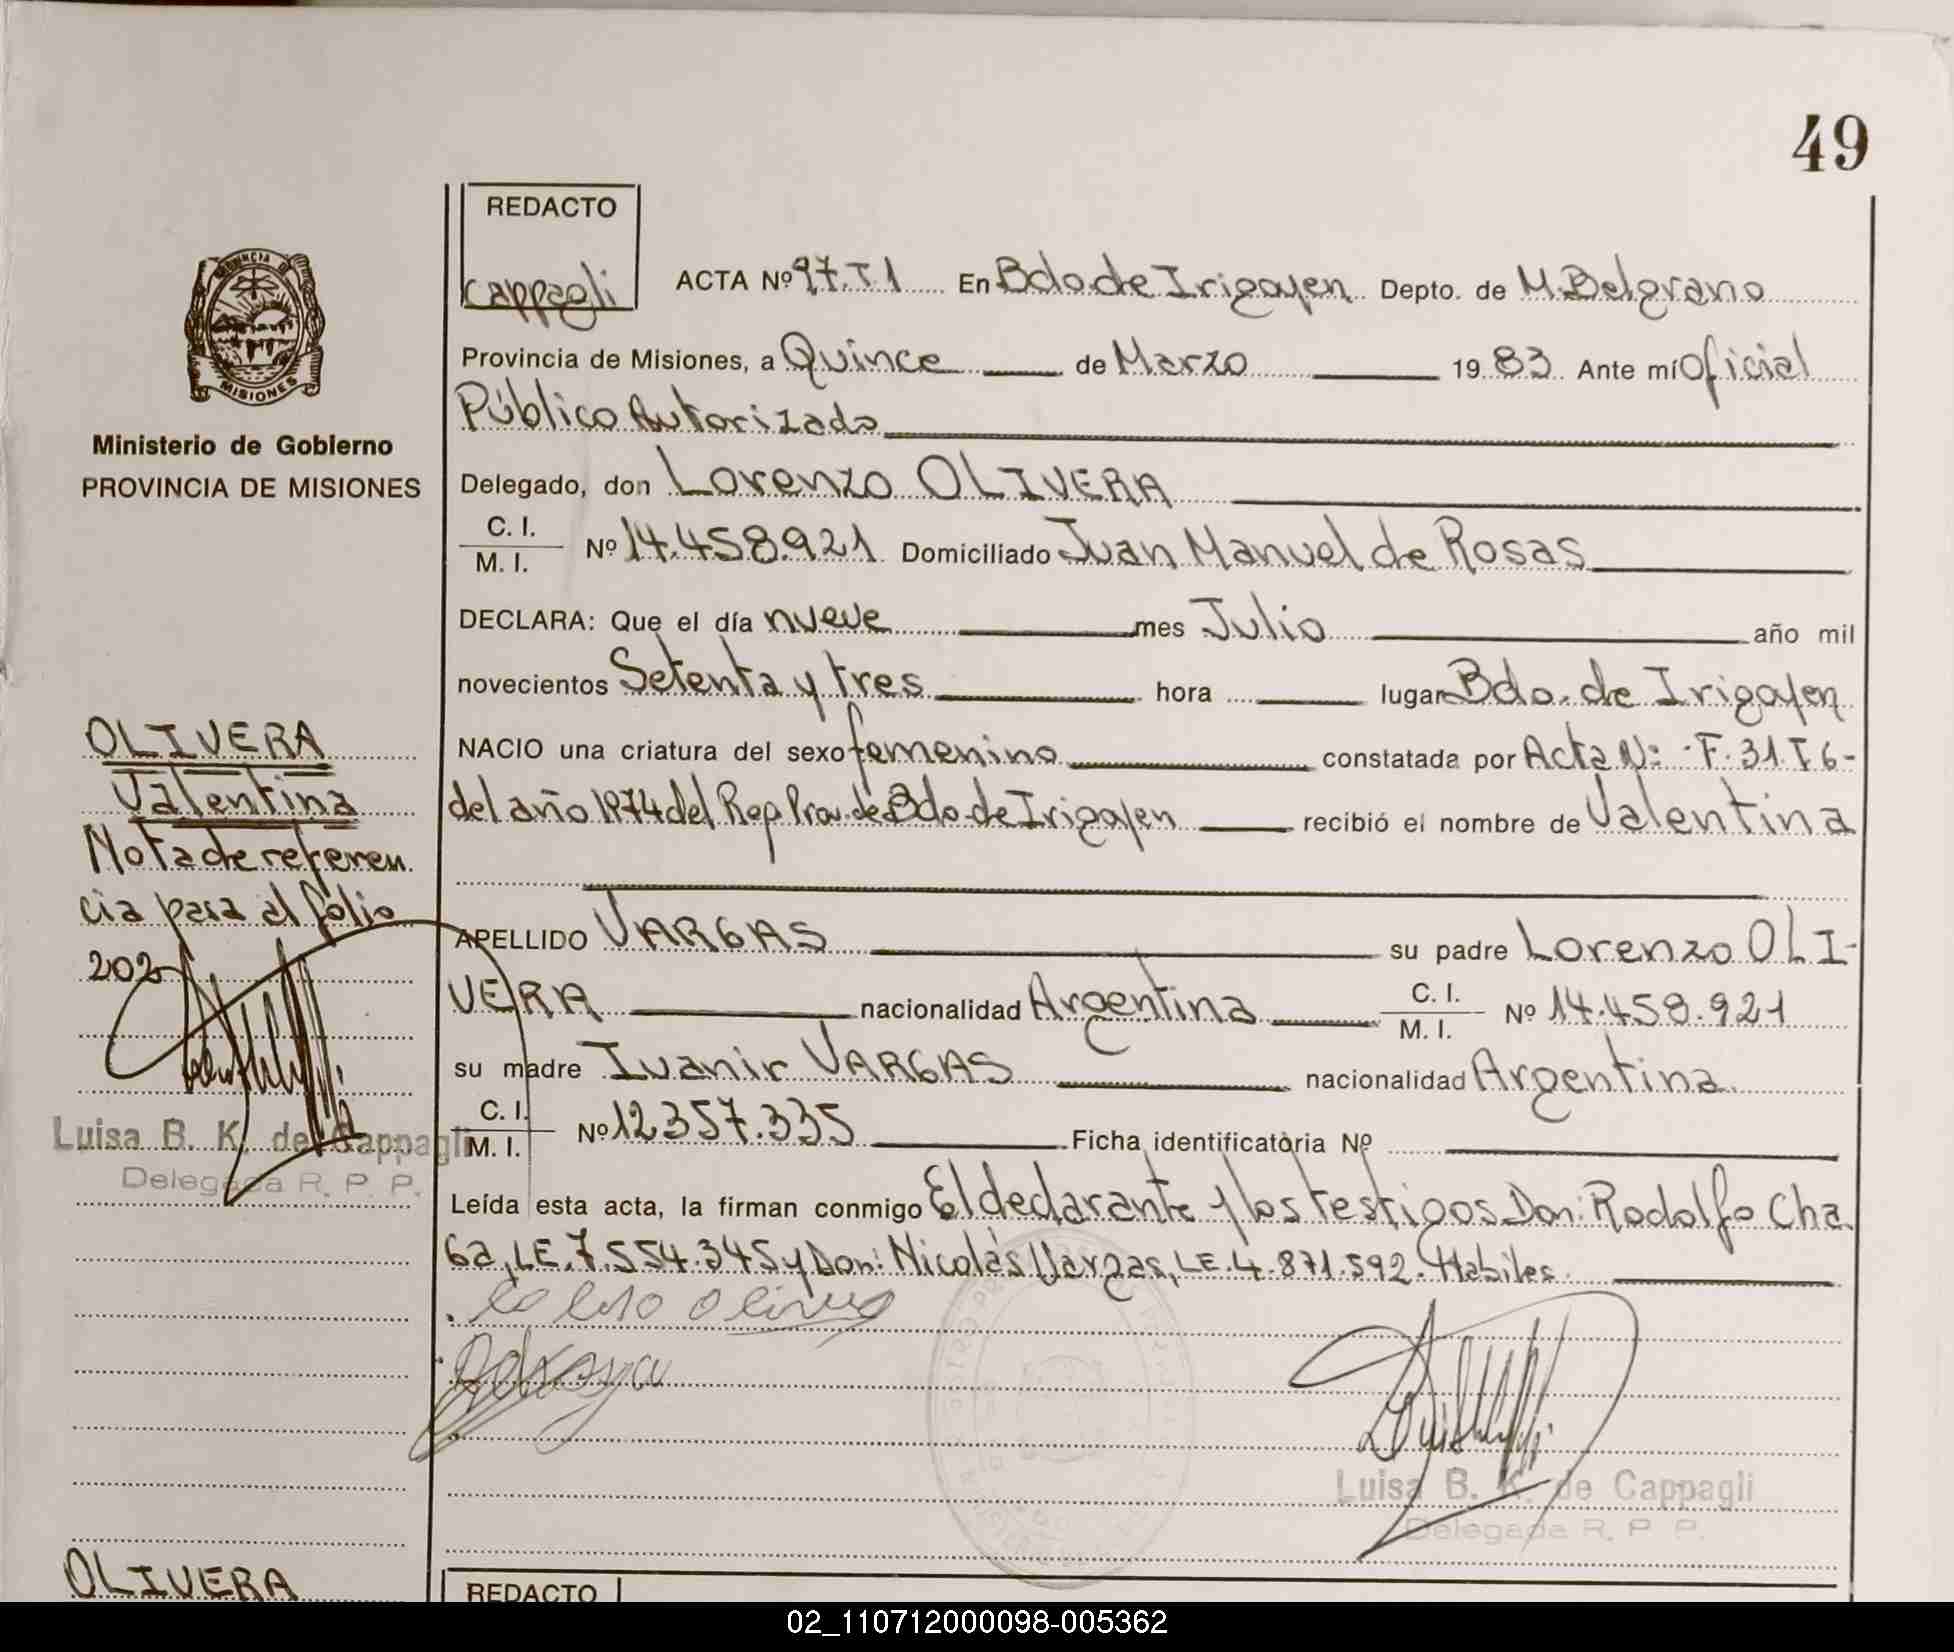 49
REDACTO
Cappagli
ACTA Nº 97. T1 En Bdo de Irigoyen Depto. de M. Belgrano
Provincia de Misiones, a Quince de Marzo 19 83 Ante mí Oficial
Público Autorizado
Delegado, don Lorenzo OLIVERA
C. I.
M. I. Nº 14.458.921 Domiciliado Juan Manuel de Rosas
DECLARA: Que el día nueve mes Julio año mil
novecientos Setenta y tres hora lugar Bdo. de Irigoyen
NACIO una criatura del sexo femenino constatada por Acta N: F.31.T6-
del año 1974 del Reg Prov. de Bdo. de Irigoyen recibió el nombre de Valentina
APELLIDO VARGAS su padre Lorenzo OLI-
VERA nacionalidad Argentina C. I. M. I. Nº 14.458.921
su madre Ivanir VARGAS nacionalidad Argentina
C. I.
M. I. Nº 12.357.335 Ficha identificatoria Nº
Leída esta acta, la firman conmigo El declarante y los testigos Don: Rodolfo Cha
ga, LE. 7.554.345 y Don: Nicolás Vargas, LE. 4.871.592. Habiles.
Luisa B. K. de Cappagli
Delegada R. P. P.
PROVINCIA DE
MISIONES
Ministerio de Gobierno
PROVINCIA DE MISIONES
OLIVERA
Valentina
Nota de referen
cia pasa al folio
202
Luisa B. K. de Cappagli
Delegada R. P. P.
OLIVERA
REDACTO
02_110712000098-005362